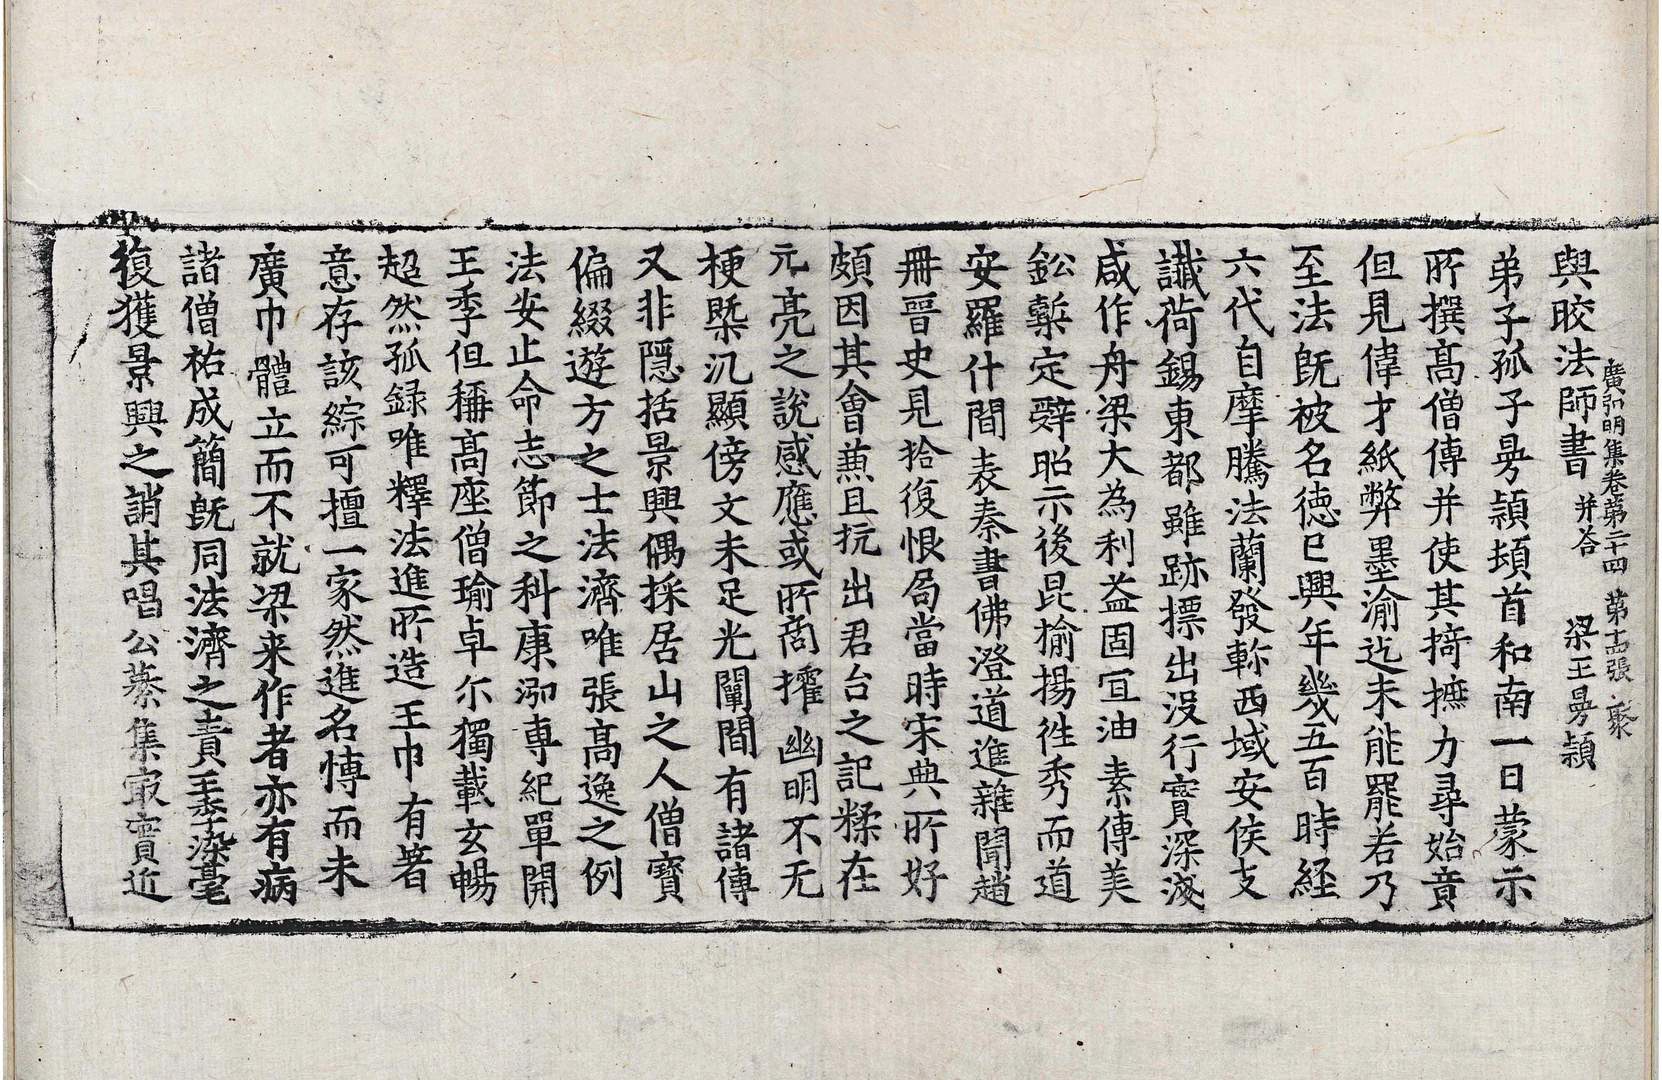 廣弘明集卷第二十四 第十五張 聚
與皎法師書 并荅 梁王曼穎
弟子孤子曼穎頓首和南一日蒙示
所撰髙僧傳并使其掎摭力尋始竟
但見偉才紙弊墨渝迄未能罷若乃
至法旣被名德巳興年幾五百時経
六代自摩騰法蘭發軫西域安侯支
讖荷錫東都雖跡摽出没行實深淺
咸作舟梁大為利益固宜油素傳美
鈆槧定辝昭示後昆揄揚徃秀而道
安羅什間表秦書佛澄道進雜聞趙
冊晋史見拾復恨局當時宋典所好
頗因其會兼且抗出君台之記糅在
元亮之說感應或所商攉幽明不无
梗槩汎顯傍文未足光闡間有諸傳
又非隱括景興偶採居山之人僧寶
偏綴遊方之士法濟唯張髙逸之例
法安止命志節之科康泓専紀單開
王季但稱髙座僧瑜卓尓獨載玄暢
超然孤録唯釋法進所造王巾有著
意存該綜可擅一家然進名愽而未
廣巾體立而不就梁来作者亦有病
諸僧祐成簡旣同法濟之責王季染毫
復獲景興之誚其唱公纂集㝡實近